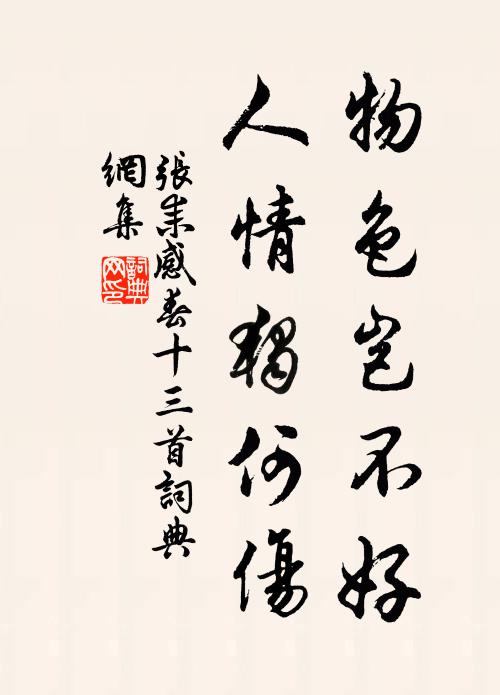 物色岂不好
人情獨何傷
張耒感春十三首詞典
網集
詞典
网印